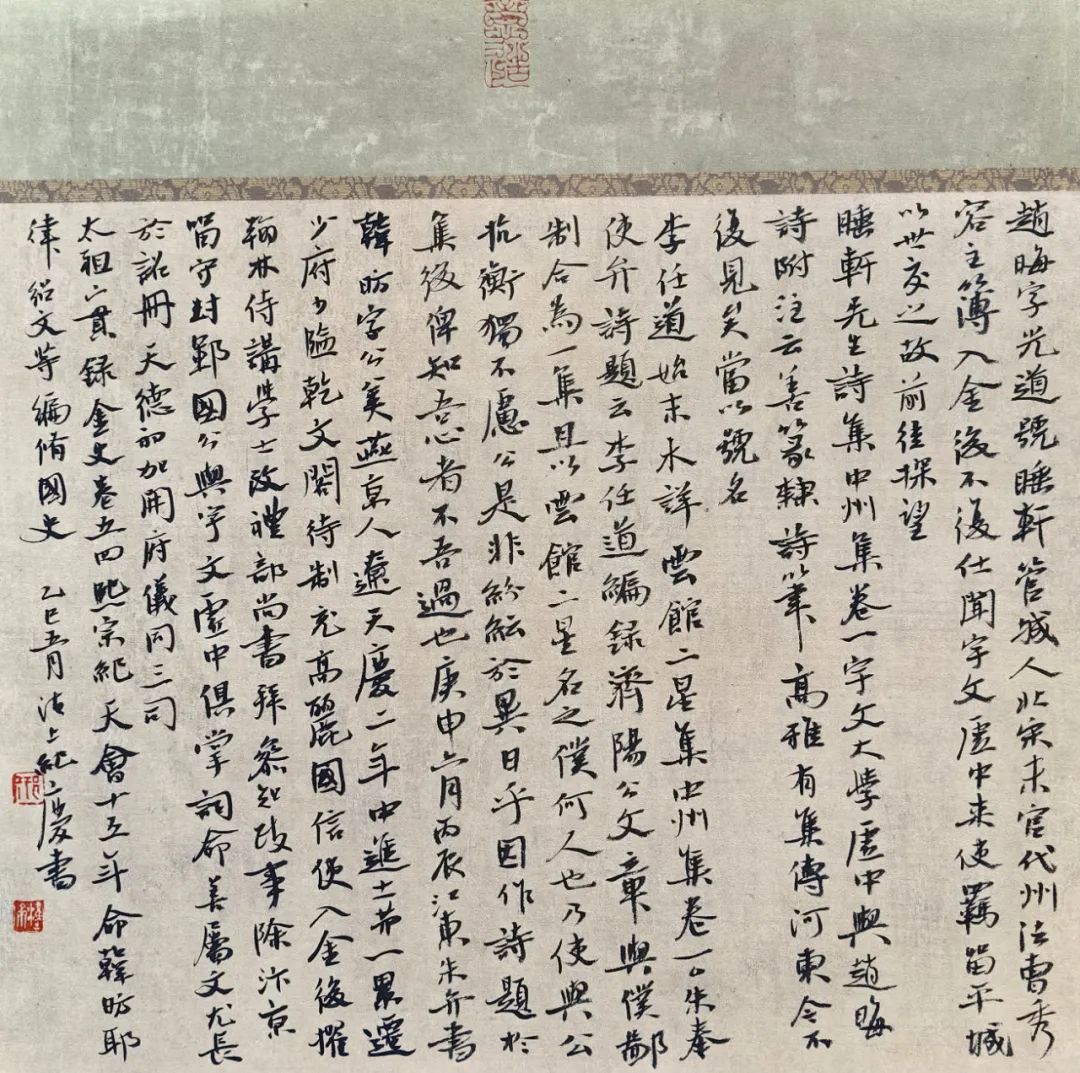 趙晦字光道號睡軒管城人北宋末官代州法曹秀
容主簿入金後不復仕聞宇文虛中来使羈留平城
以世交之故前往探望
睡軒先生詩集中州集卷一宇文大學虛中與趙晦
詩附注云善篆隸詩筆高雅有集傳河東今不
復見矣當以號名
李任道始末未詳雲館二星集中州集卷一朱奉
使弁詩題云李任道編録濟陽公文章與僕鄙
制合為一集且以雲館二星名之僕何人也乃使與公
抗衡獨不慮公是非紛紜於異日乎因作詩題於
集後俾知吾心者不吾過也庚申六月丙辰江東朱弁書
韓昉字公美燕京人遼天慶二年中進士第一累遷
少府少監乾文閣待制充高麗國信使入金後擢
翰林侍講學士改禮部尚書拜叅知政事除汴京
留守封鄆國公與宇文虛中俱掌詞命善屬文尤長
於詔冊天德初加開府儀同三司
太祖實録金史卷五四熙宗紀天會十五年命韓昉耶
律紹文等編脩國史 乙巳五月 沽上紀慶書